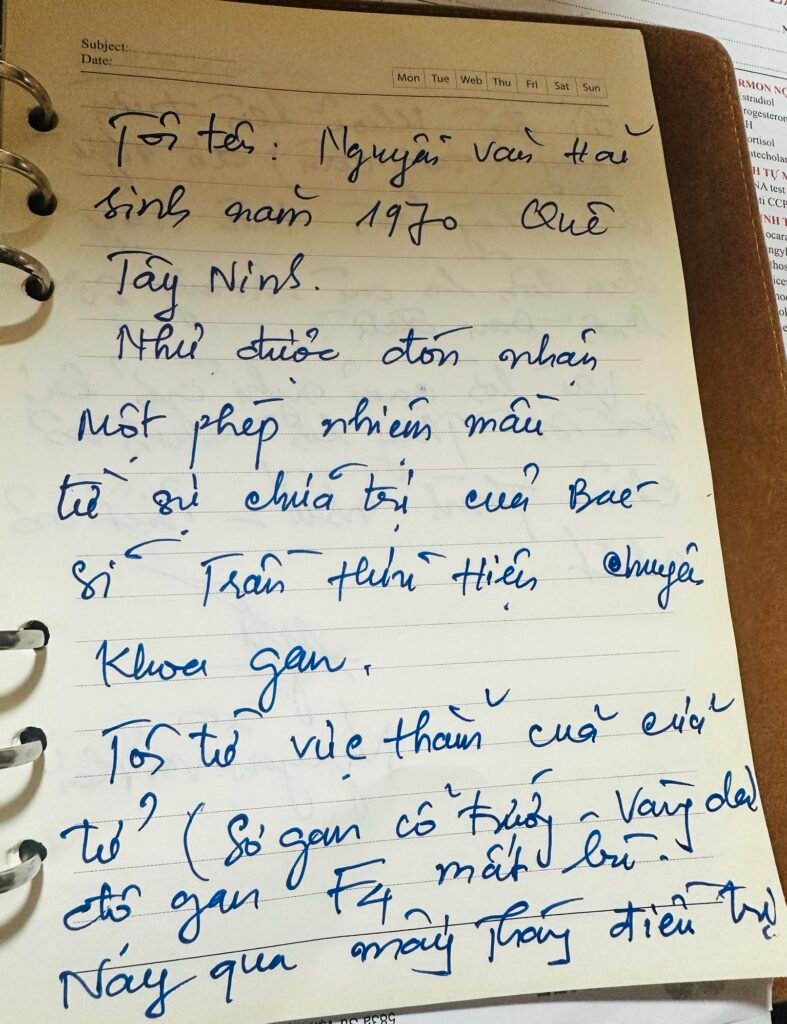 Subject:
Date:
Mon Tue Web Thu Fri Sat Sun
Tôi tên: Nguyễn Văn Hải
sinh năm 1970 Quê
Tây Ninh.
Như được đón nhận
Một phép nhiệm mầu
từ sự chữa trị của Bác
sĩ Trần Hữu Hiền chuyên
Khoa gan.
Tôi từ vực thẳm của cửa
tử (Sơ gan cổ trướng - Vàng da
độ gan F4 mất bù.
Nay qua mấy tháng điều trị
RMON NỘ
stradiol
rogesteron
H
ortisol
H TỰ M
NA test
ti CCP